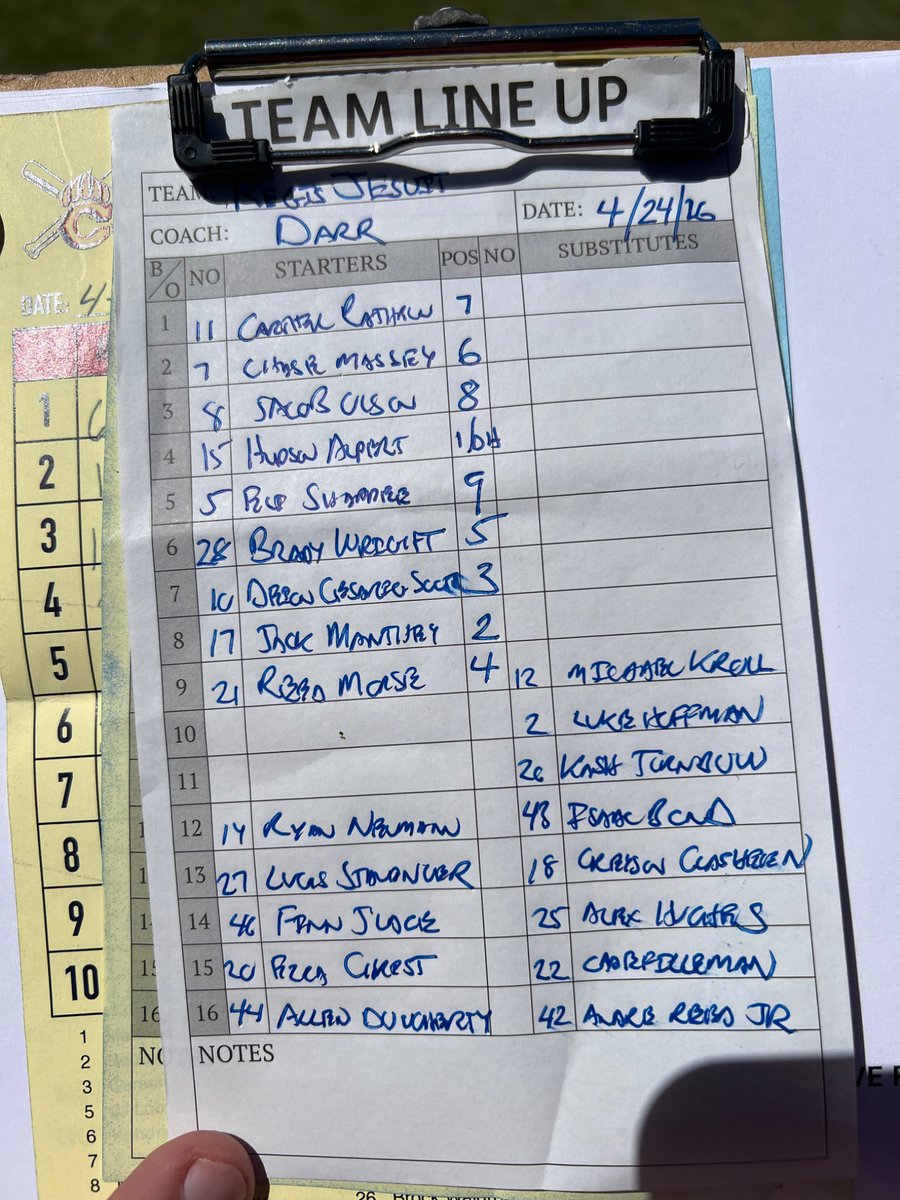 TEAM LINE UP
TEAM: REGIS JESUIT
COACH: DARR DATE: 4/24/26
B/O NO STARTERS POS NO SUBSTITUTES
1 11 CARTER 7
2 7 CHASE MASSEY 6
3 8 JACOB OLSON 8
4 15 HUDSON ALPERT 1/DH
5 5 9
6 28 BRADY WRIGHT 5
7 10 3
8 17 JACK MANTHEY 2
9 21 REED MORSE 4 12 MICHAEL KROLL
10 2 LUKE HOFFMAN
11 26 KASH TURNBOW
12 14 RYAN NEWMANN 48 ISAAC BOND
13 27 LUCAS 18 GREYSON
14 46 FINN JUDGE 25 ALEX HUGHES
15 20 22
16 44 ALLEN DOUGHERTY 42 ANDRE REED JR
NOTES
DATE: 4-
1
2
3
4
5
6
7
8
9
10
1
2
3
5
6
7
8
15
16
NO
26 Brock